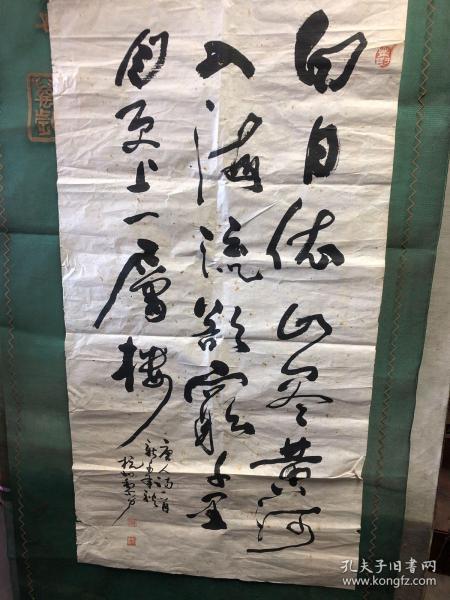 白日依山尽黄河
入海流欲窮千里
目更上一層樓
唐人詩一首
孔夫子旧书网
www.kongfz.com